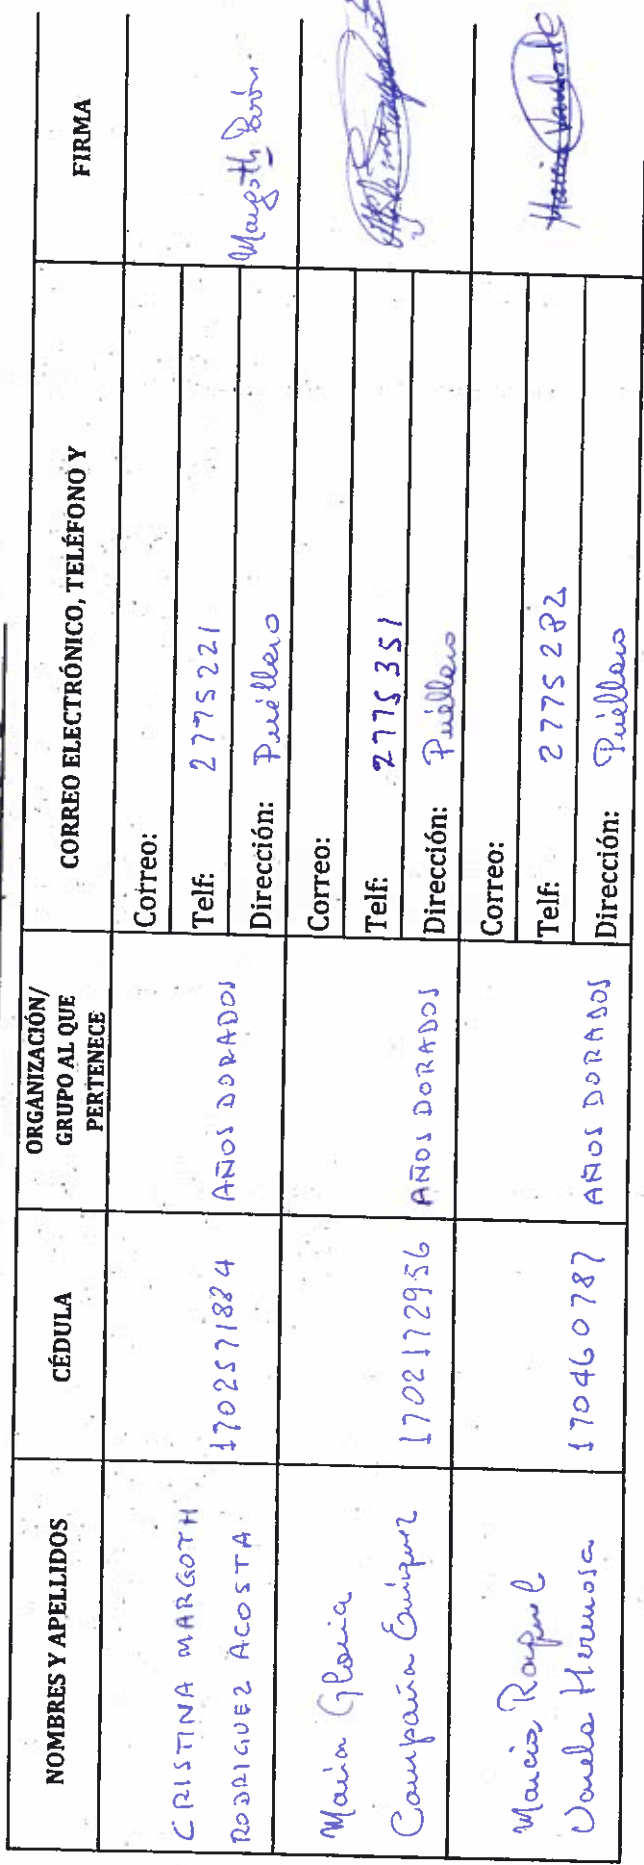 NOMBRES Y APELLIDOS
CÉDULA
ORGANIZACIÓN/
GRUPO AL QUE
PERTENECE
CORREO ELECTRÓNICO, TELÉFONO Y
FIRMA
CRISTINA MARGOTH
RODRIGUEZ ACOSTA
1702571884
AÑOS DORADOS
Correo:
Telf: 2775221
Dirección: Puéllaro
Margoth
María Gloria
Campaña Enríquez
1702172956
AÑOS DORADOS
Correo:
Telf: 2775351
Dirección: Puéllaro
Marcia Raquel
Varela Hermosa
170460787
AÑOS DORADOS
Correo:
Telf: 2775282
Dirección: Puéllaro